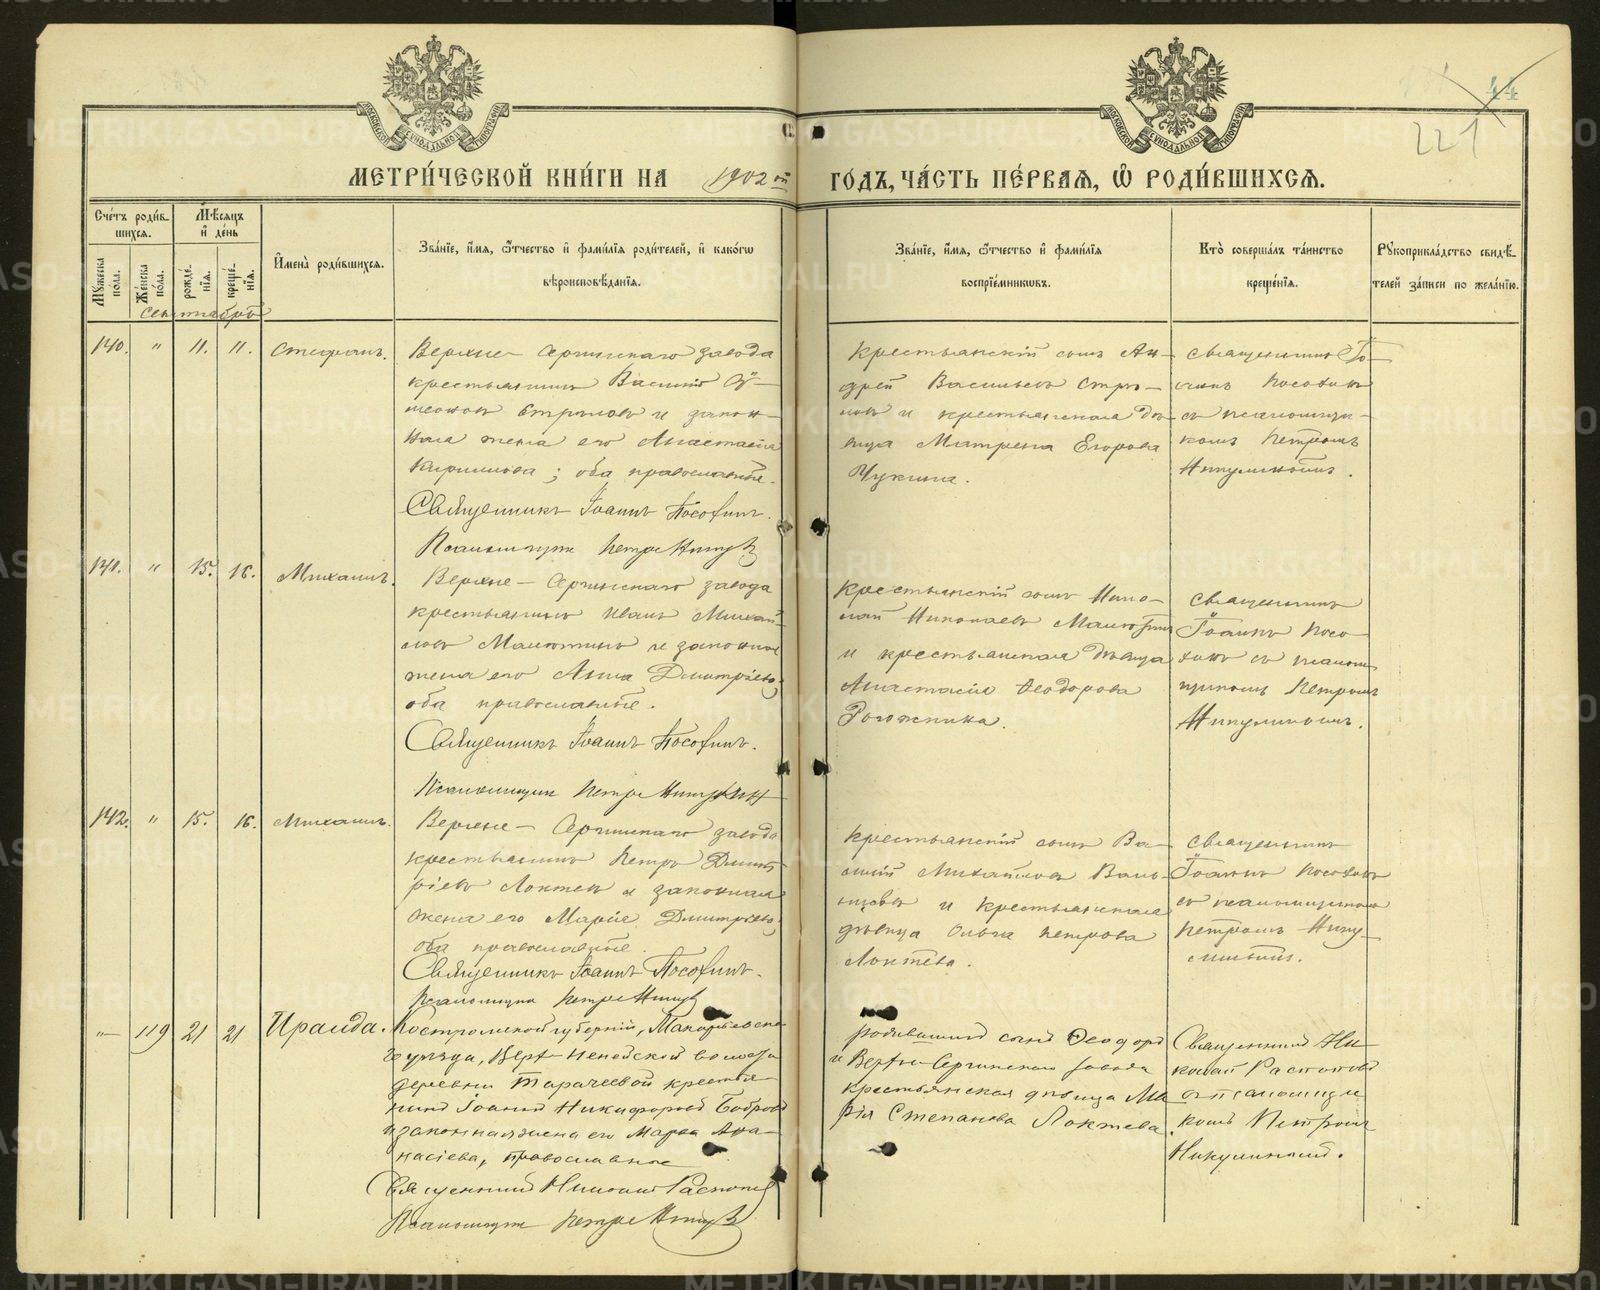 44
221
МОСКОВСКОЙ СѴНОДАЛЬНОЙ ТИПОГРАФІИ
МОСКОВСКОЙ СѴНОДАЛЬНОЙ ТИПОГРАФІИ
МЕТРИ́ЧЕСКОЙ КНИ́ГИ НА 1902 й ГОДЪ, ЧА́СТЬ ПЕ́РВАѦ, Ѡ РОДИ́ВШИХСѦ.
Сче́тъ роди́в-
шихсѧ.
Мꙋжеска по́ла.
Же́нска по́ла.
Мѣ́сѧцъ
и҆ де́нь
рожде́-
нїѧ.
креще́-
нїѧ.
И҆мена̀ роди́вшихсѧ.
Зва́нїе, и҆́мѧ, ѻ҆́тчество и҆ фами́лїѧ роди́телей, и҆ како́гѡ
вѣроисповѣ́данїѧ.
Зва́нїе, и҆́мѧ, ѻ҆́тчество и҆ фами́лїѧ
воспрїе́мникѡвъ.
Кто̀ соверша́лъ та́инство
креще́нїѧ.
Рꙋкоприкла́дство свидѣ́-
телей за́писи по жела́нїю.
Сентябрь
140. " 11. 11. Стефанъ.
Верхне-Сергинскаго завода
крестьянинъ Василій Сѵ-
меоновъ Стрѣловъ и закон-
ная жена его Анастасія
Кириллова; оба православные.
Священникъ Іоаннъ Пософинъ.
Псаломщикъ Петръ Никулинъ
Крестьянскій сынъ Ан-
дрей Васильевъ Стрѣ-
ловъ и крестьянская дѣ-
вица Матрена Егорова
Чукина.
Священникъ Іо-
аннъ Пософинъ
съ псаломщи-
комъ Петромъ
Никулинымъ.
141. " 15. 16. Михаилъ.
Верхне-Сергинскаго завода
крестьянинъ Иванъ Михай-
ловъ Малютинъ и законная
жена его Анна Димитріева;
оба православные.
Священникъ Іоаннъ Пософинъ.
Псаломщикъ Петръ Никулин
Крестьянскій сынъ Нико-
лай Николаевъ Малютинъ
и крестьянская дѣвица
Анастасія Ѳеодорова
Рогожкина.
Священникъ
Іоаннъ Посо-
финъ съ псалом-
щикомъ Петромъ
Никулинымъ.
142. " 15. 16. Михаилъ.
Верхне-Сергинскаго завода
крестьянинъ Петръ Димит-
ріевъ Локтевъ и законная
жена его Марія Димитріева;
оба православные.
Священникъ Іоаннъ Пософинъ.
Псаломщикъ Петръ Никулинъ
Крестьянскій сынъ Ва-
силій Михайловъ
и крестьянская
дѣвица Ольга Петрова
Локтева.
Священникъ
Іоаннъ Пософинъ
съ псаломщикомъ
Петромъ Нику-
линымъ.
"— 119 21 21 Ираида.
Костромской губерніи, Макарьевска-
го уѣзда, Верх-Ненейской волости
деревни Тарачеевой крестья-
нинъ Іоаннъ Никифоровъ Бобровъ
и законная жена его Марѳа Аѳа-
насіева, православные
Священникъ Николай Распоповъ
Псаломщикъ Петръ Никулинъ
родившаго сынъ Ѳеодоръ
и Верхне-Сергинскаго завода
крестьянская дѣвица Ма-
рія Степанова Локтева.
Священникъ Ни-
колай Распоповъ
съ псаломщи-
комъ Петромъ
Никулинымъ.
METRIKI.GASO-URAL.RU